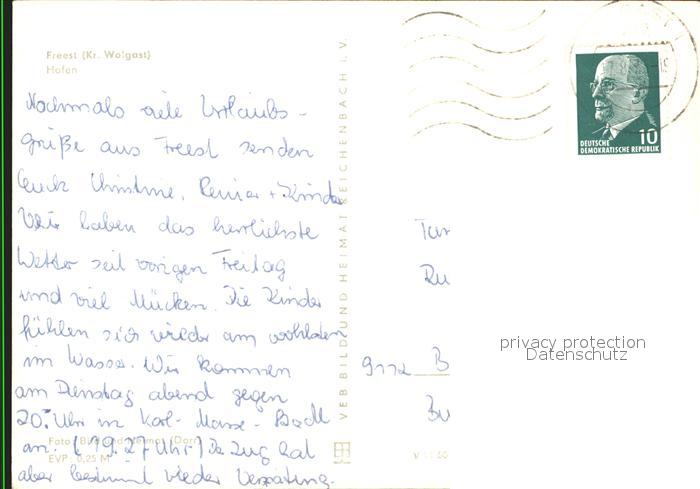 Freest (Kr. Wolgast)
Hafen
Nochmals viele Urlaubs-
grüße aus Freest senden
Euch Christine, Reiner + Kinder
Wir haben das herrlichste
Wetter seit vorigen Freitag
und viel Mücken. Die Kinder
fühlen sich wieder am wohlsten
im Wasser. Wir kommen
am Dienstag abend gegen
20.⁰⁰ Uhr in Karl-Marx-Stadt
an. (19.27 Uhr) Der Zug hat
aber bestimmt wieder Verspätung.
Foto: Bild und Heimat (Darr)
EVP: 0,25 M
VEB BILD UND HEIMAT REICHENBACH I. V.
10
DEUTSCHE
DEMOKRATISCHE REPUBLIK
privacy protection
Datenschutz
9112 B